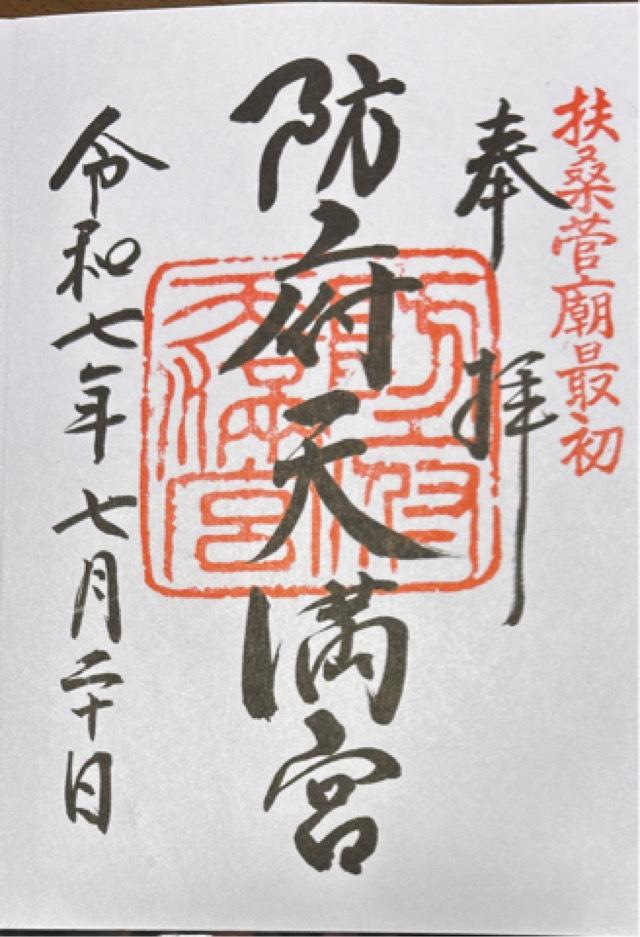 扶桑菅廟最初
奉拝
防府天満宮
令和七年七月二十日